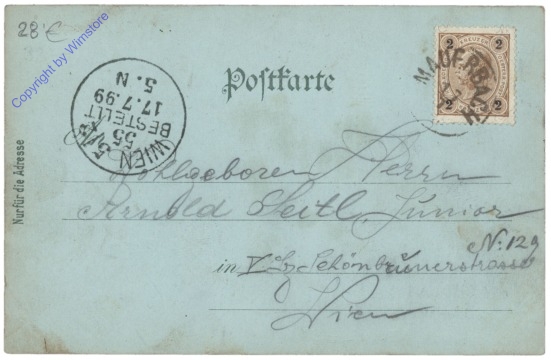 28 €
Copyright by Wimstore
Postkarte
2 KREUZER 2
2 2
MAUERBACH
WIEN 5/1
55
BESTELLT
17.7.99
5. N
Nur für die Adresse
Wohlgeboren Herrn
Arnold Seitl Junior
N: 129
in V Bz Schönbrunerstrasse
Wien